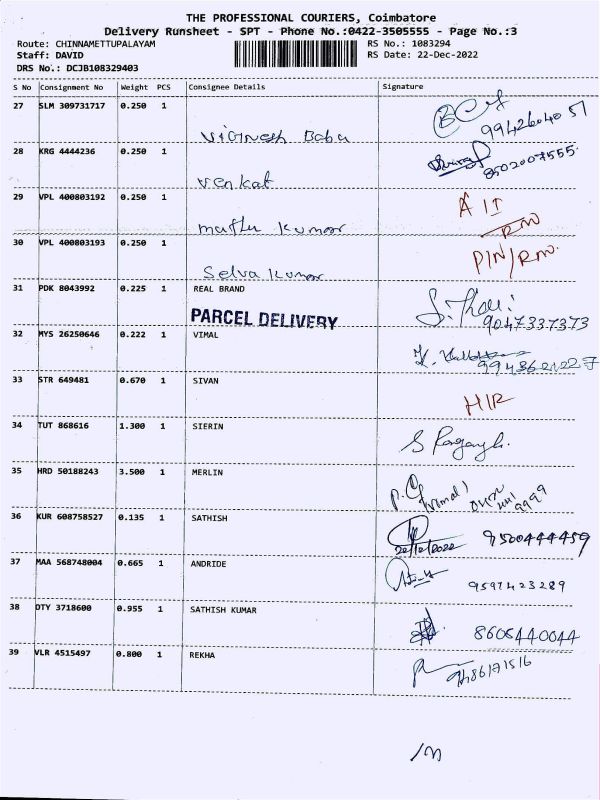 THE PROFESSIONAL COURIERS, Coimbatore
Delivery Runsheet - SPT - Phone No.:0422-3505555 - Page No.:3
Route: CHINNAMETTUPALAYAM RS No.: 1083294
Staff: DAVID RS Date: 22-Dec-2022
DRS No.: DCJB108329403
S No Consignment No Weight PCS Consignee Details Signature
27 SLM 309731717 0.250 1
Vignesh Babu 9942604051
28 KRG 4444236 0.250 1
Venkat 8502007555
29 VPL 400803192 0.250 1
muthu kumar
30 VPL 400803193 0.250 1
Selva kumar PIN/RM.
31 PDK 8043992 0.225 1 REAL BRAND
PARCEL DELIVERY 9047337373
32 MYS 26250646 0.222 1 VIMAL
33 STR 649481 0.670 1 SIVAN
34 TUT 868616 1.300 1 SIERIN
35 HRD 50188243 3.500 1 MERLIN
36 KUR 608758527 0.135 1 SATHISH
22/12/2022 9500444459
37 MAA 568748004 0.665 1 ANDRIDE
9597423289
38 OTY 3718600 0.955 1 SATHISH KUMAR
8605440044
39 VLR 4515497 0.800 1 REKHA